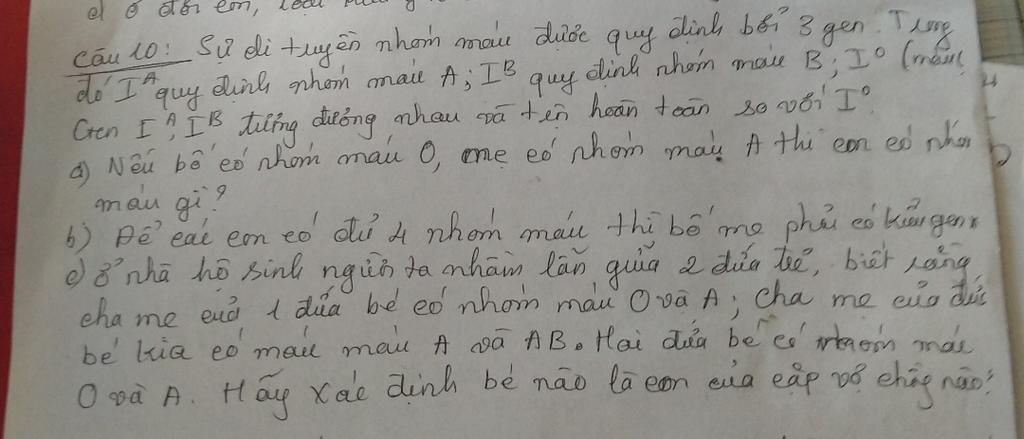 e) ở đời con,
Câu 10: Sự di truyền nhóm máu được quy định bởi 3 gen. Trong
đó I^A quy định nhóm máu A; I^B quy định nhóm máu B; I^O (máu
Gen I^A, I^B tương đương nhau và trội hoàn toàn so với I^O.
a) Nếu bố có nhóm máu O, mẹ có nhóm máu A thì con có nhóm
máu gì?
b) Để các con có đủ 4 nhóm máu thì bố mẹ phải có kiểu gen
c) Ở nhà hộ sinh người ta nhầm lẫn giữa 2 đứa trẻ, biết rằng
cha mẹ của 1 đứa bé có nhóm máu O và A; cha mẹ của đứa
bé kia có máu máu A và AB. Hai đứa bé có nhóm máu
O và A. Hãy xác định bé nào là con của cặp vợ chồng nào?